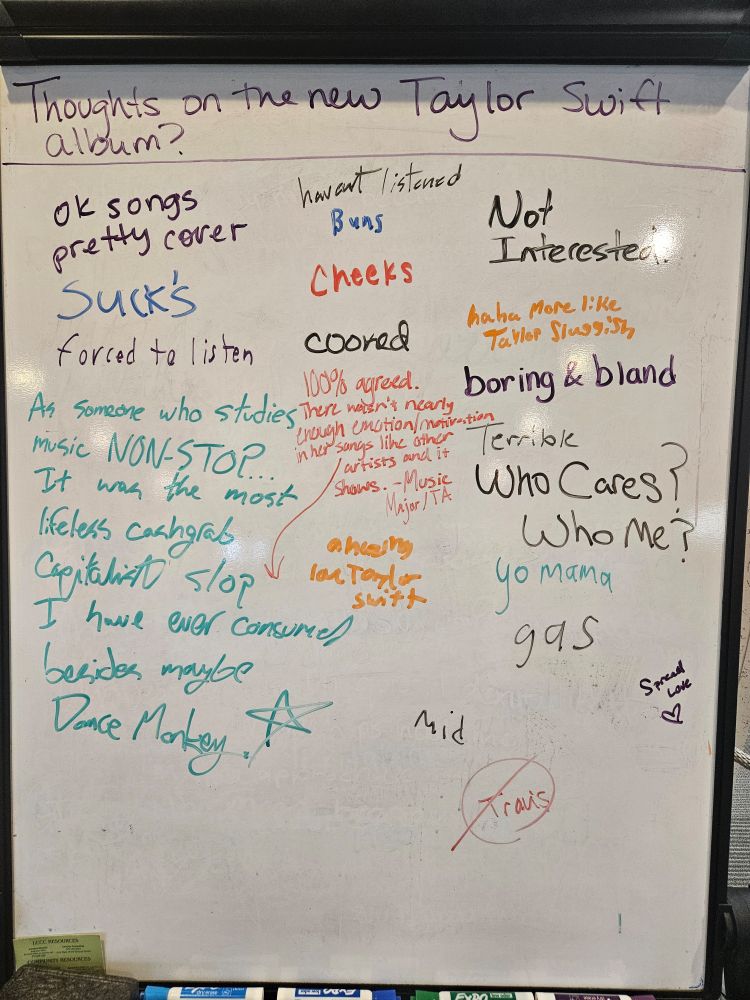 Thoughts on the new Taylor Swift
album?
ok songs
pretty cover
Suck's
forced to listen
As someone who studies
music NON-STOP...
It was the most
lifeless cashgrab
Capitalist slop
I have ever consumed
besides maybe
Dance Monkey.
havent listened
Buns
Cheeks
cooked
100% agreed.
There wasn't nearly
enough emotion/motivation
in her songs like other
artists and it
shows. -Music
Major/TA
love Taylor
swift
Mid
Not
Interested.
haha more like
Taylor Sluggish
boring & bland
Terrible
Who Cares?
Who Me?
yo mama
gas
Spread
Love
Travis
LCCC RESOURCES
COMMUNITY RESOURCES
EXPO
EXPO
EXPO